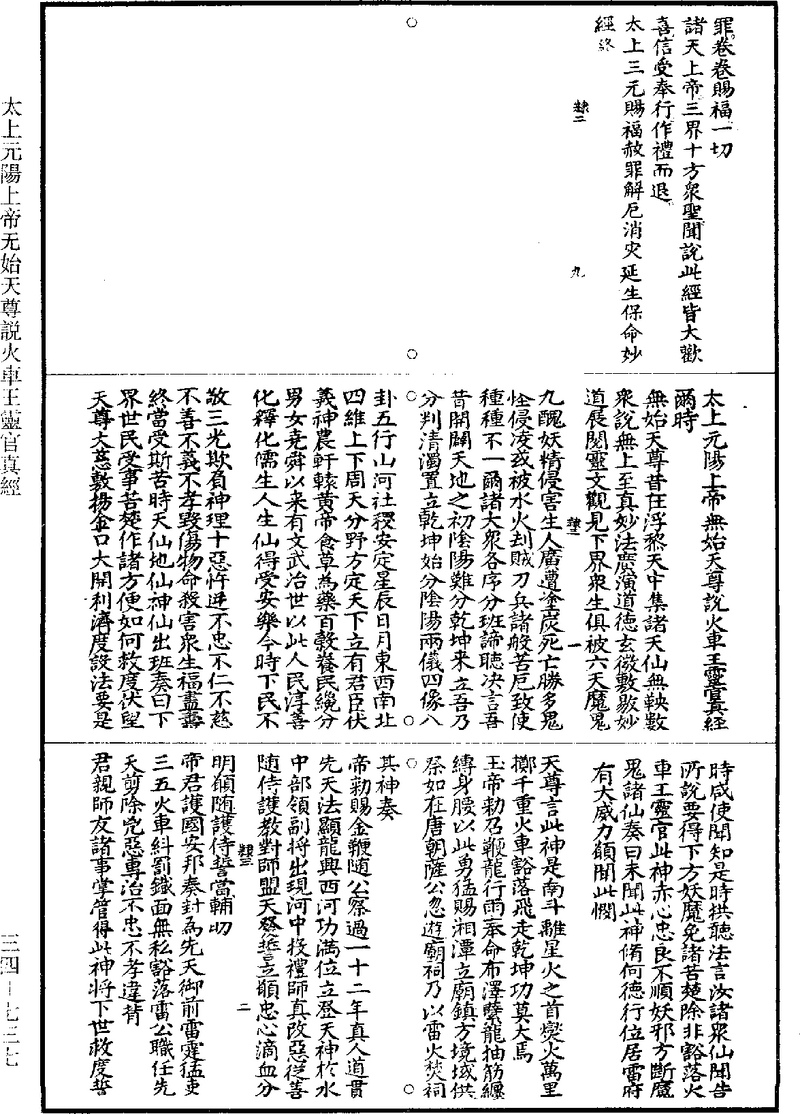 罪卷卷賜福一切
諸天上帝三界十方衆聖聞說此經皆大歡
喜信受奉行作禮而退
太上三元賜福赦罪解厄消灾延生保命妙
經終
隸二
九
太上元陽上帝無始天尊說火車王靈官真經
爾時
無始天尊昔在浮黎天中集諸天仙無鞅數
衆說無上至真妙法廣演道德玄微敷敭妙
道展閱靈文觀見下界衆生俱被六天魔鬼
隸三
一
九醜妖精侵害生人廣遭塗炭死亡勝多鬼
怪侵凌或被水火刦賊刀兵諸般苦厄致使
種種不一爾諸大衆各序分班諦聽決言吾
昔開闢天地之初陰陽難分乾坤來立吾乃
分判清濁置立乾坤始分陰陽兩儀四像八
卦五行山河社稷安定星辰日月東西南北
四維上下周天分野方定天下立有君臣伏
羲神農軒轅黃帝食草為藥百穀養民纔分
男女堯舜以來有文武治世以此人民淳善
化釋化儒生人生仙得受安樂今時下民不
敬三光欺負神理十惡忤逆不忠不仁不慈
不善不義不孝毀傷物命殺害衆生福盡壽
終當受斯苦時天仙地仙神仙出班奏曰下
界世民受事苦楚作諸方便如何救度伏望
天尊大慈敷揚金口大開利濟度設法要是
時咸使聞知是時拱聽法言汝諸衆仙聞告
所說要得下方妖魔免諸苦楚除非豁落火
車王靈官此神赤心忠良不順妖邪方斷魔
鬼諸仙奏曰未聞此神脩何德行位居雷府
有大威力願聞此憫
天尊言此神是南斗離星火之首爕火萬里
擲千重火車豁落飛走乾坤功莫大焉
玉帝勅召鞭龍行雨奉命布澤孽龍抽筋纏
縛身腰以此勇猛賜湘潭立廟鎮方境域供
祭如在唐朝薩公忽遊廟祠乃以雷火焚祠
其神奏
帝勅賜金鞭隨公察過一十二年真人道貫
先天法顯龍興西河功滿位立登天神於水
中部領副將出現河中投禮師真改惡從善
隨侍護教對師盟天發誓立願忠心滴血分
隸三
二
明願隨護侍誓當輔切
帝君護國安邦奏封為先天御前雷霆猛吏
三五火車糾罰鐵面無私豁落雷公職任先
天剪除兇惡專治不忠不孝違背
君親師友諸事掌管得此神將下世救度誓
太上元陽上帝无始天尊說火車王靈官真經
三四–七三七